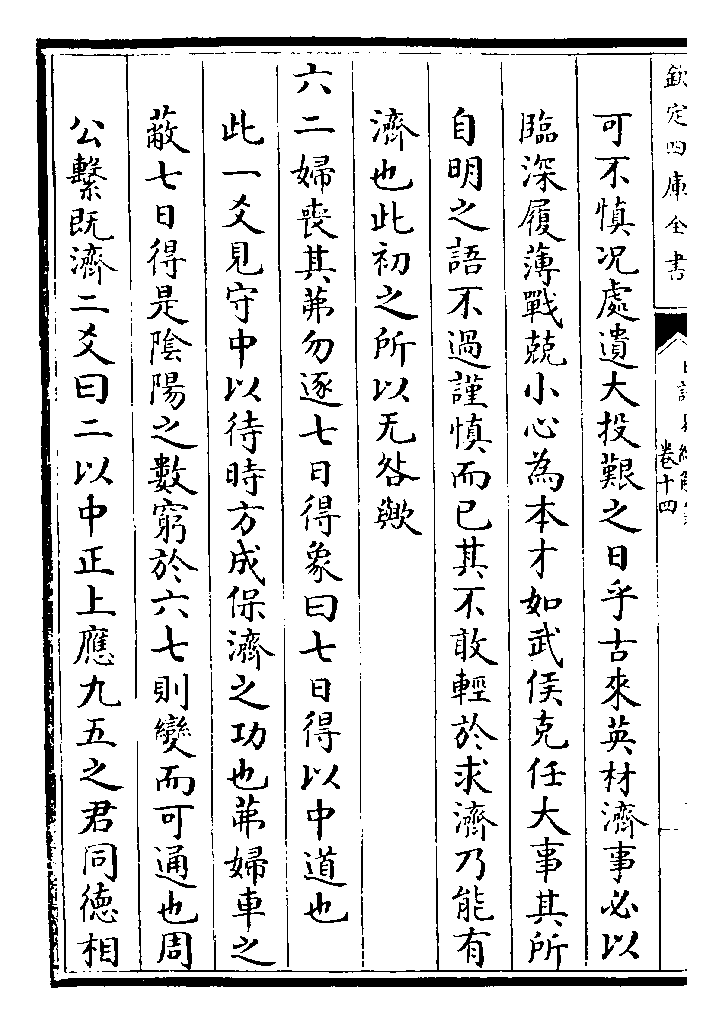 欽定四庫全書
卷十四
可不慎况處遺大投艱之日乎古來英材濟事必以
臨深履薄戰兢小心為本才如武侯克任大事其所
自明之語不過謹慎而已其不敢輕於求濟乃能有
濟也此初之所以无咎歟
六二婦喪其茀勿逐七日得象曰七日得以中道也
此一爻見守中以待時方成保濟之功也茀婦車之
蔽七日得是陰陽之數窮於六七則變而可通也周
公繫既濟二爻曰二以中正上應九五之君同徳相